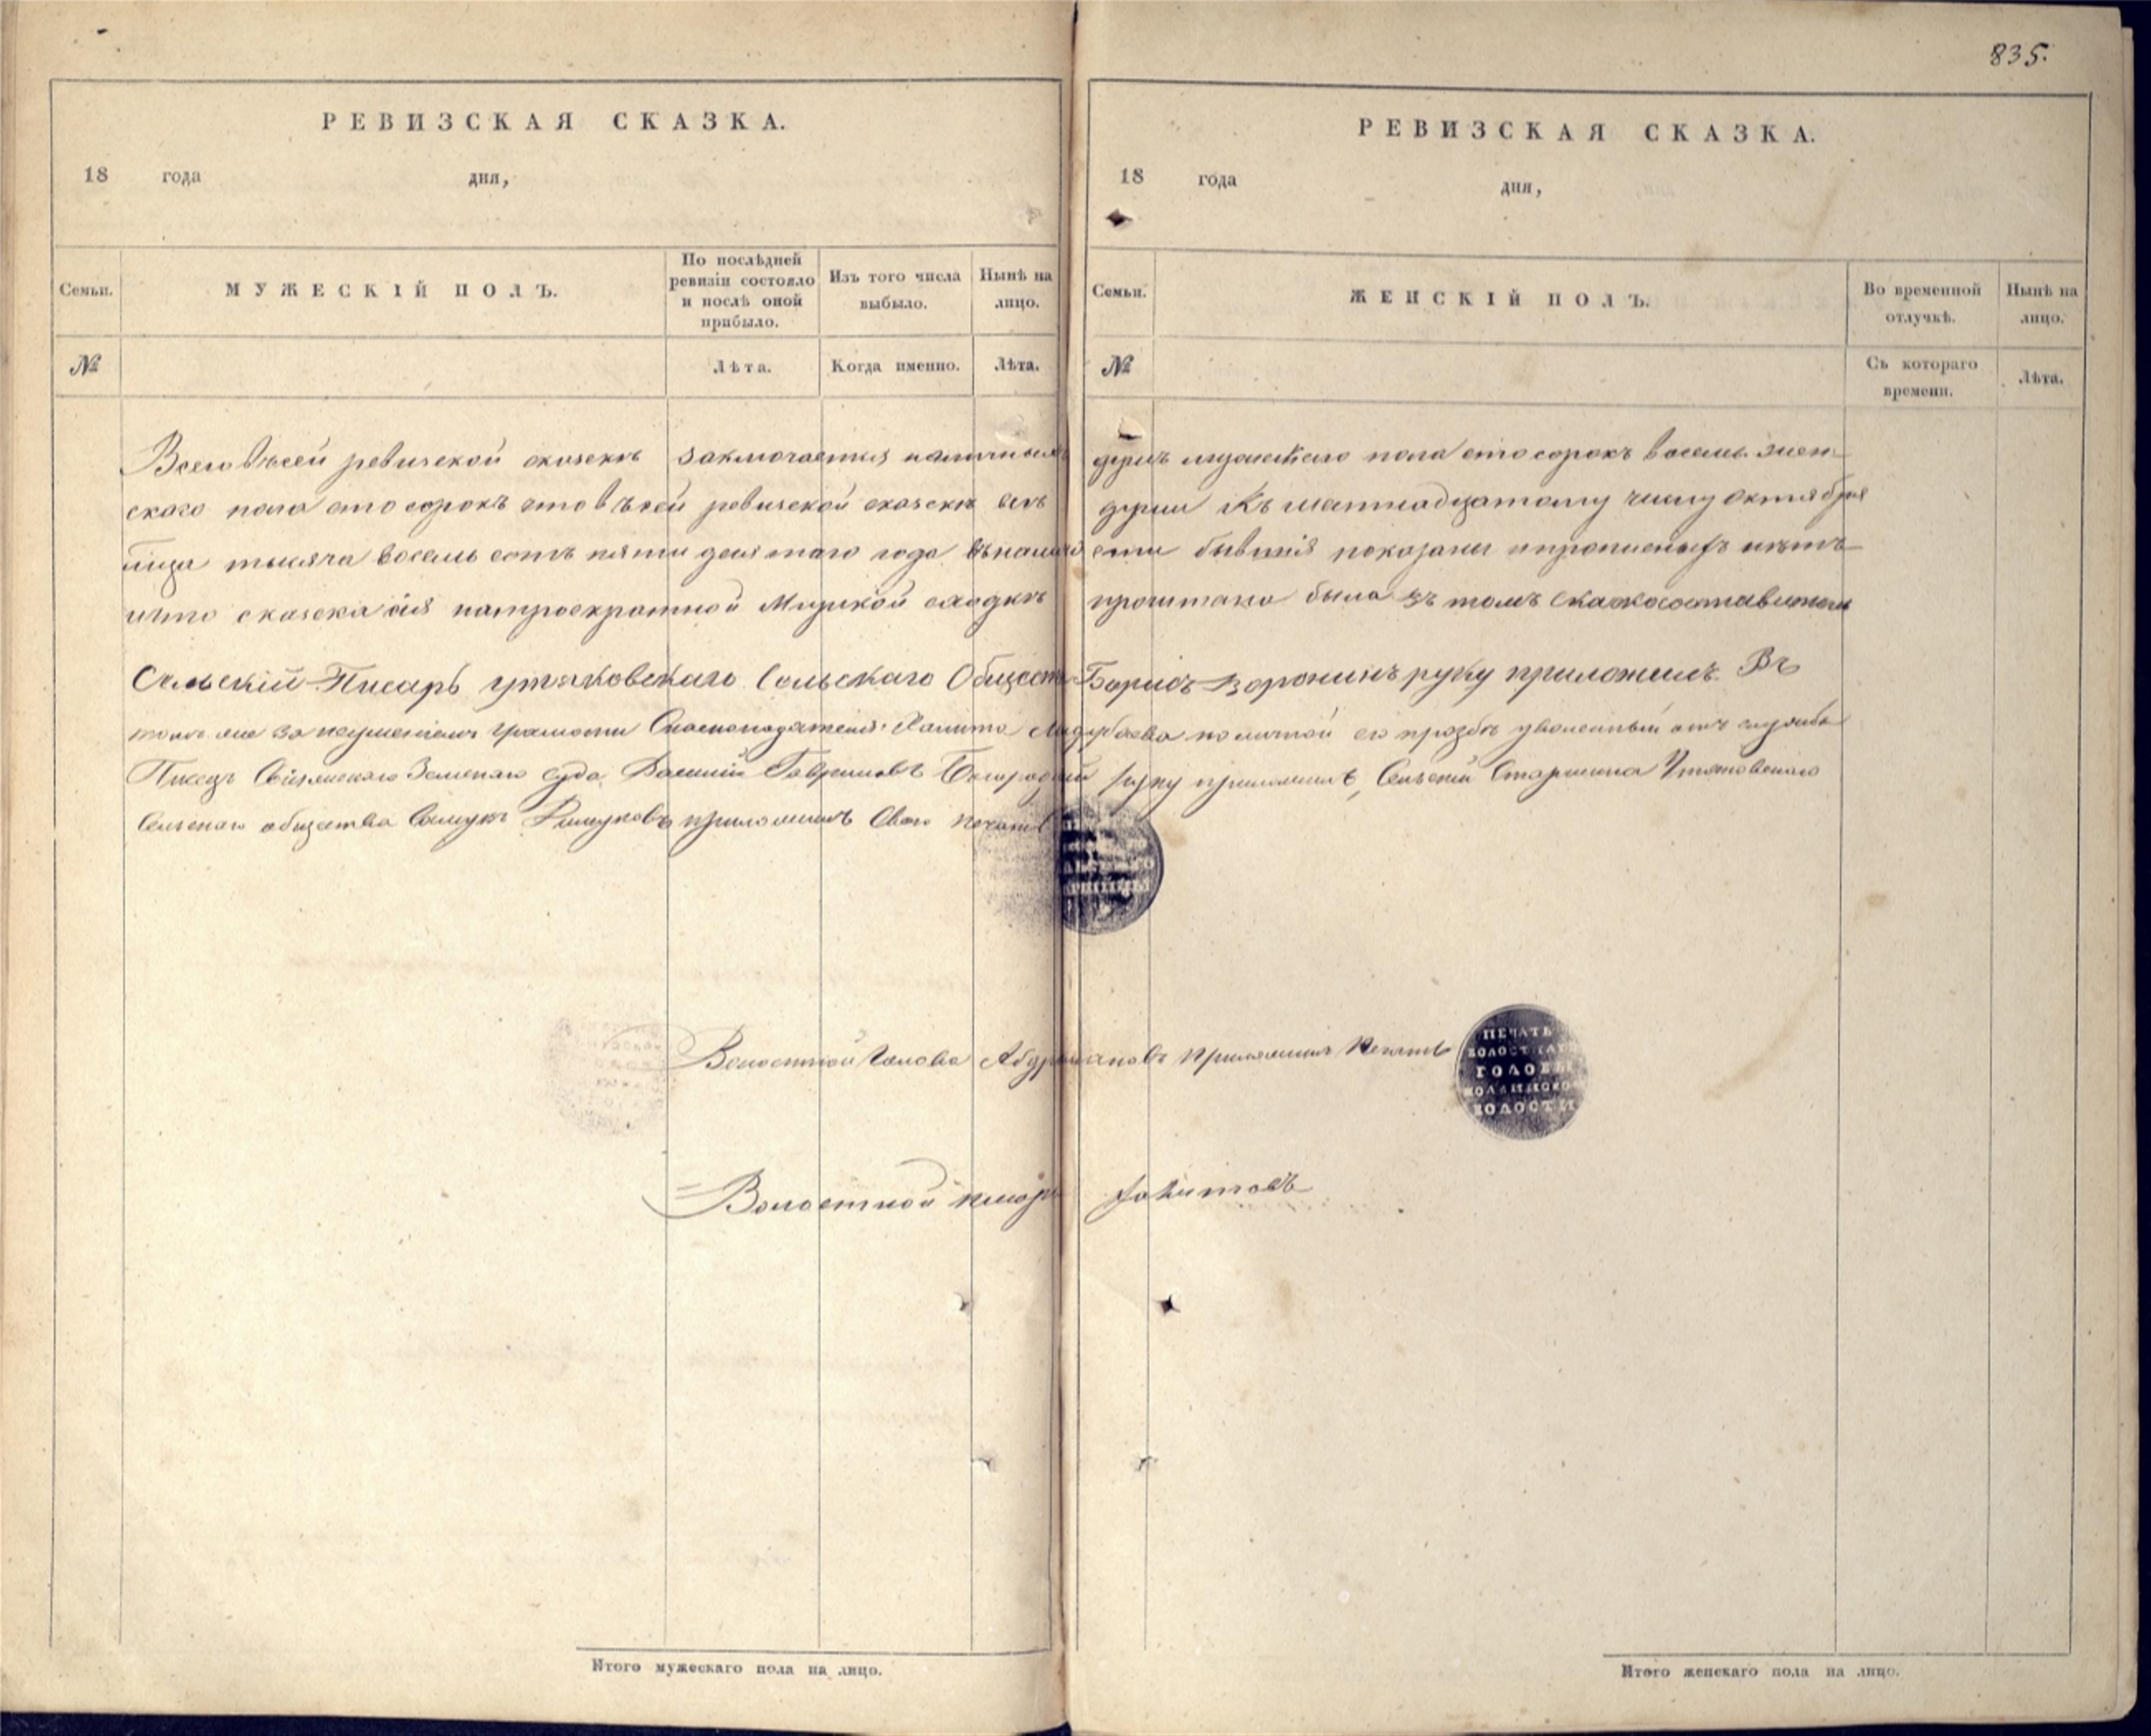 835.
РЕВИЗСКАЯ СКАЗКА.
18 года дня,
Семьи.
МУЖЕСКІЙ ПОЛЪ.
По послѣдней ревизіи состояло и послѣ оной прибыло.
Изъ того числа выбыло.
Нынѣ на лицо.
№
Лѣта.
Когда именно.
Лѣта.
РЕВИЗСКАЯ СКАЗКА.
18 года дня,
Семьи.
ЖЕНСКІЙ ПОЛЪ.
Во временной отлучкѣ.
Нынѣ на лицо.
№
Съ котораго времени.
Лѣта.
Всего въ сей ревиской сказскѣ заключается наличныхъ душъ мужескаго пола сто сорокъ восемь жен-
скаго пола сто сорокъ что въ сей ревиской сказскѣ всѣ души Къ шестнадцатому числу Октября
тысяча восемь сотъ пяти десятаго года бывшія показаны и прописныхъ нѣтъ
и что сказска сія на троекратной Мирской сходкѣ прочитана была въ томъ
Сельскій Писарь утяковскаго Сельскаго Общест Борисъ Воронинъ руку приложилъ Въ
томъ же за неумѣніемъ грамоты по личной его прозбѣ уволенный отъ службы
Писецъ Свіяжскаго Земскаго суда Василій Гавриловъ руку приложилъ, Сельскій Старшина Утяковскаго
Сельскаго общества приложилъ Свою печать
Волостной Голова Абдрахмановъ Приложилъ Печать
ПЕЧАТЬ
ГОЛОВЫ
ВОЛОСТИ
Волостной писарь
Итого мужескаго пола на лицо.
Итого женскаго пола на лицо.